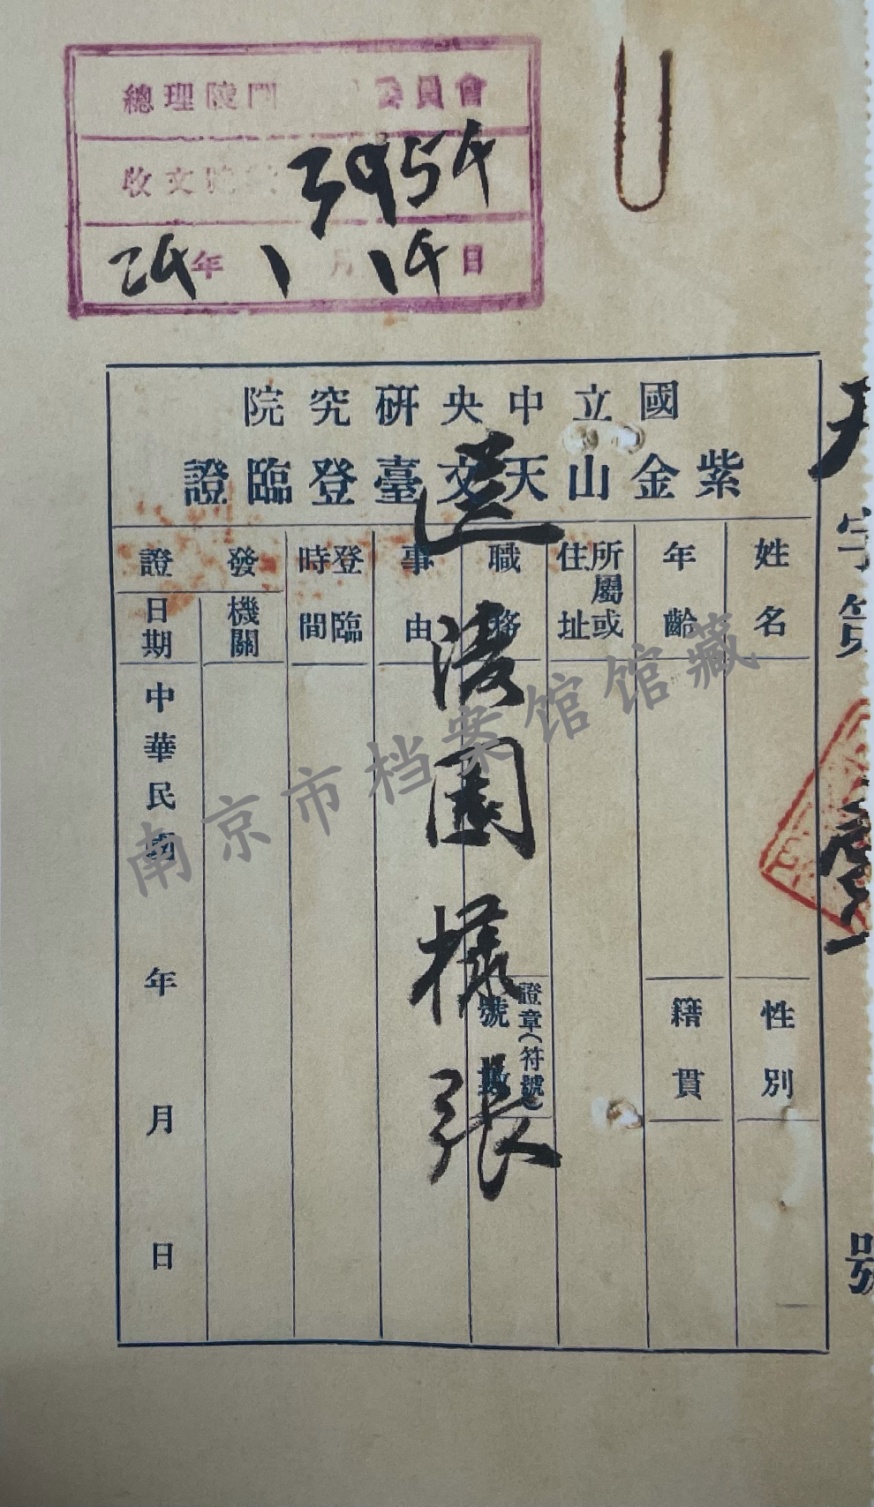 總理陵 員會
收文 3954
24年1月14日
國立中央研究院
紫金山天文臺登臨證
姓名
性別
年齡
籍貫
所屬或住址
職務
證章(符號)號數
事由
登臨時間
發證
機關
日期
中華民國 年 月 日
送 園樣張
字第
號
南京市档案馆馆藏